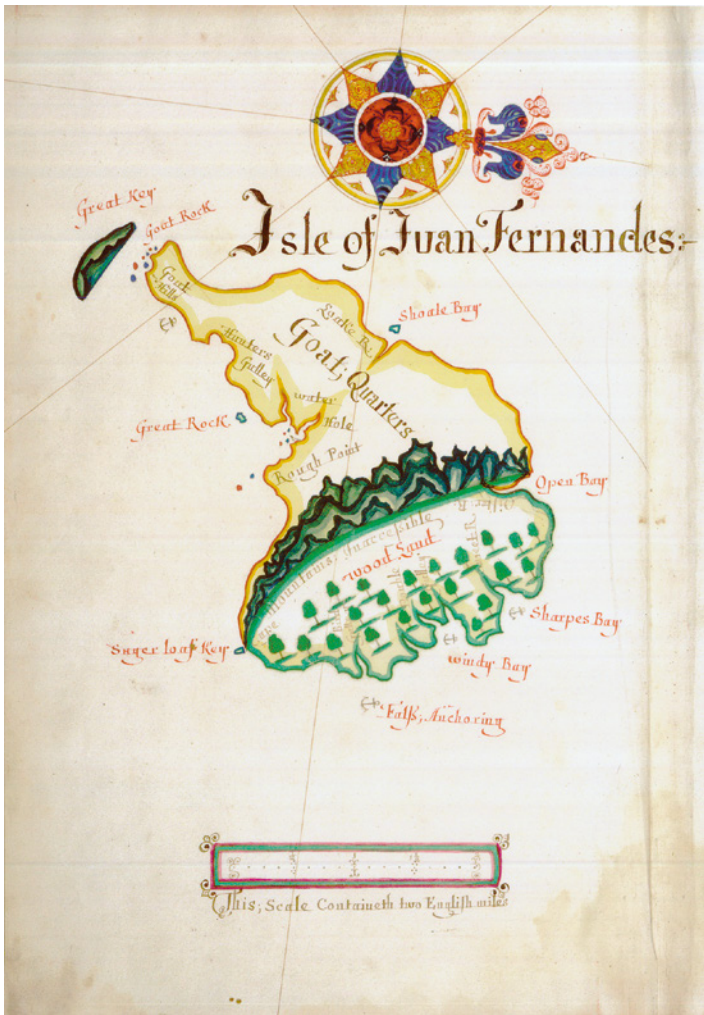 Great Key
Goat Rock
Isle of Juan Fernandes:
Goat
Hills
Loake R.
Shoale Bay
Goat; Quarters
Hunters
Gulley
water
Hole
Great Rock
Rough Point
Open Bay
Mountains Inaccessible
Wood Land
Sharpes Bay
Suger loaf Key
windy Bay
Falss; Anchoring
This; Scale Containeth two English miles